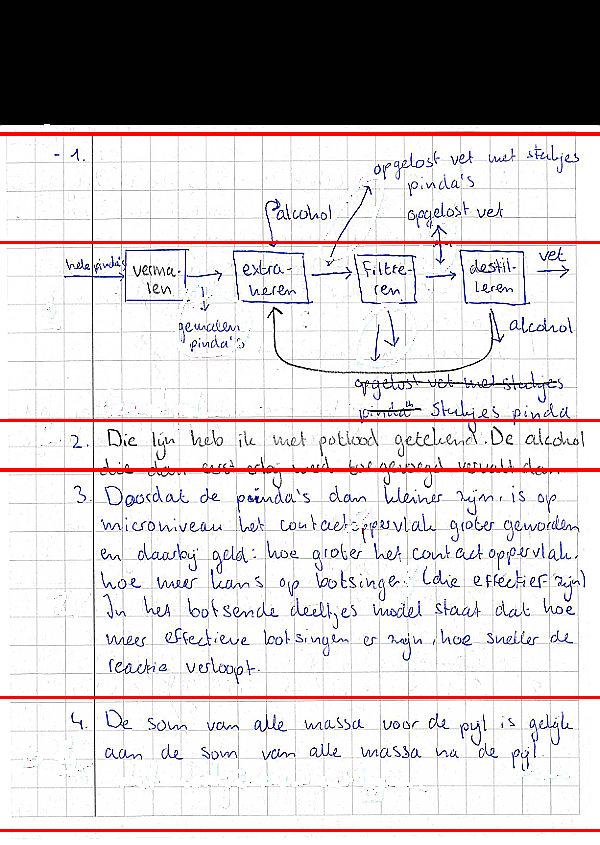 - 1.
opgelost vet met stukjes
pinda's
alcohol
opgelost vet
hele pinda's
verma-
len
extra-
heren
filtre-
ren
destil-
leren
vet
gemalen
pinda's
alcohol
opgelost vet met stukjes
pinda
stukjes pinda
2. Die lijn heb ik met potlood getekend. De alcohol
die dan eerst nog werd toegevoegd vervalt dan
3. Doordat de pinda's dan kleiner zijn, is op
microniveau het contactoppervlak groter geworden
en daarbij geld: hoe groter het contactoppervlak,
hoe meer kans op botsingen. (die effectief zijn)
In het botsende deeltjes model staat dat hoe
meer effectieve botsingen er zijn, hoe sneller de
reactie verloopt.
4. De som van alle massa voor de pijl is gelijk
aan de som van alle massa na de pijl